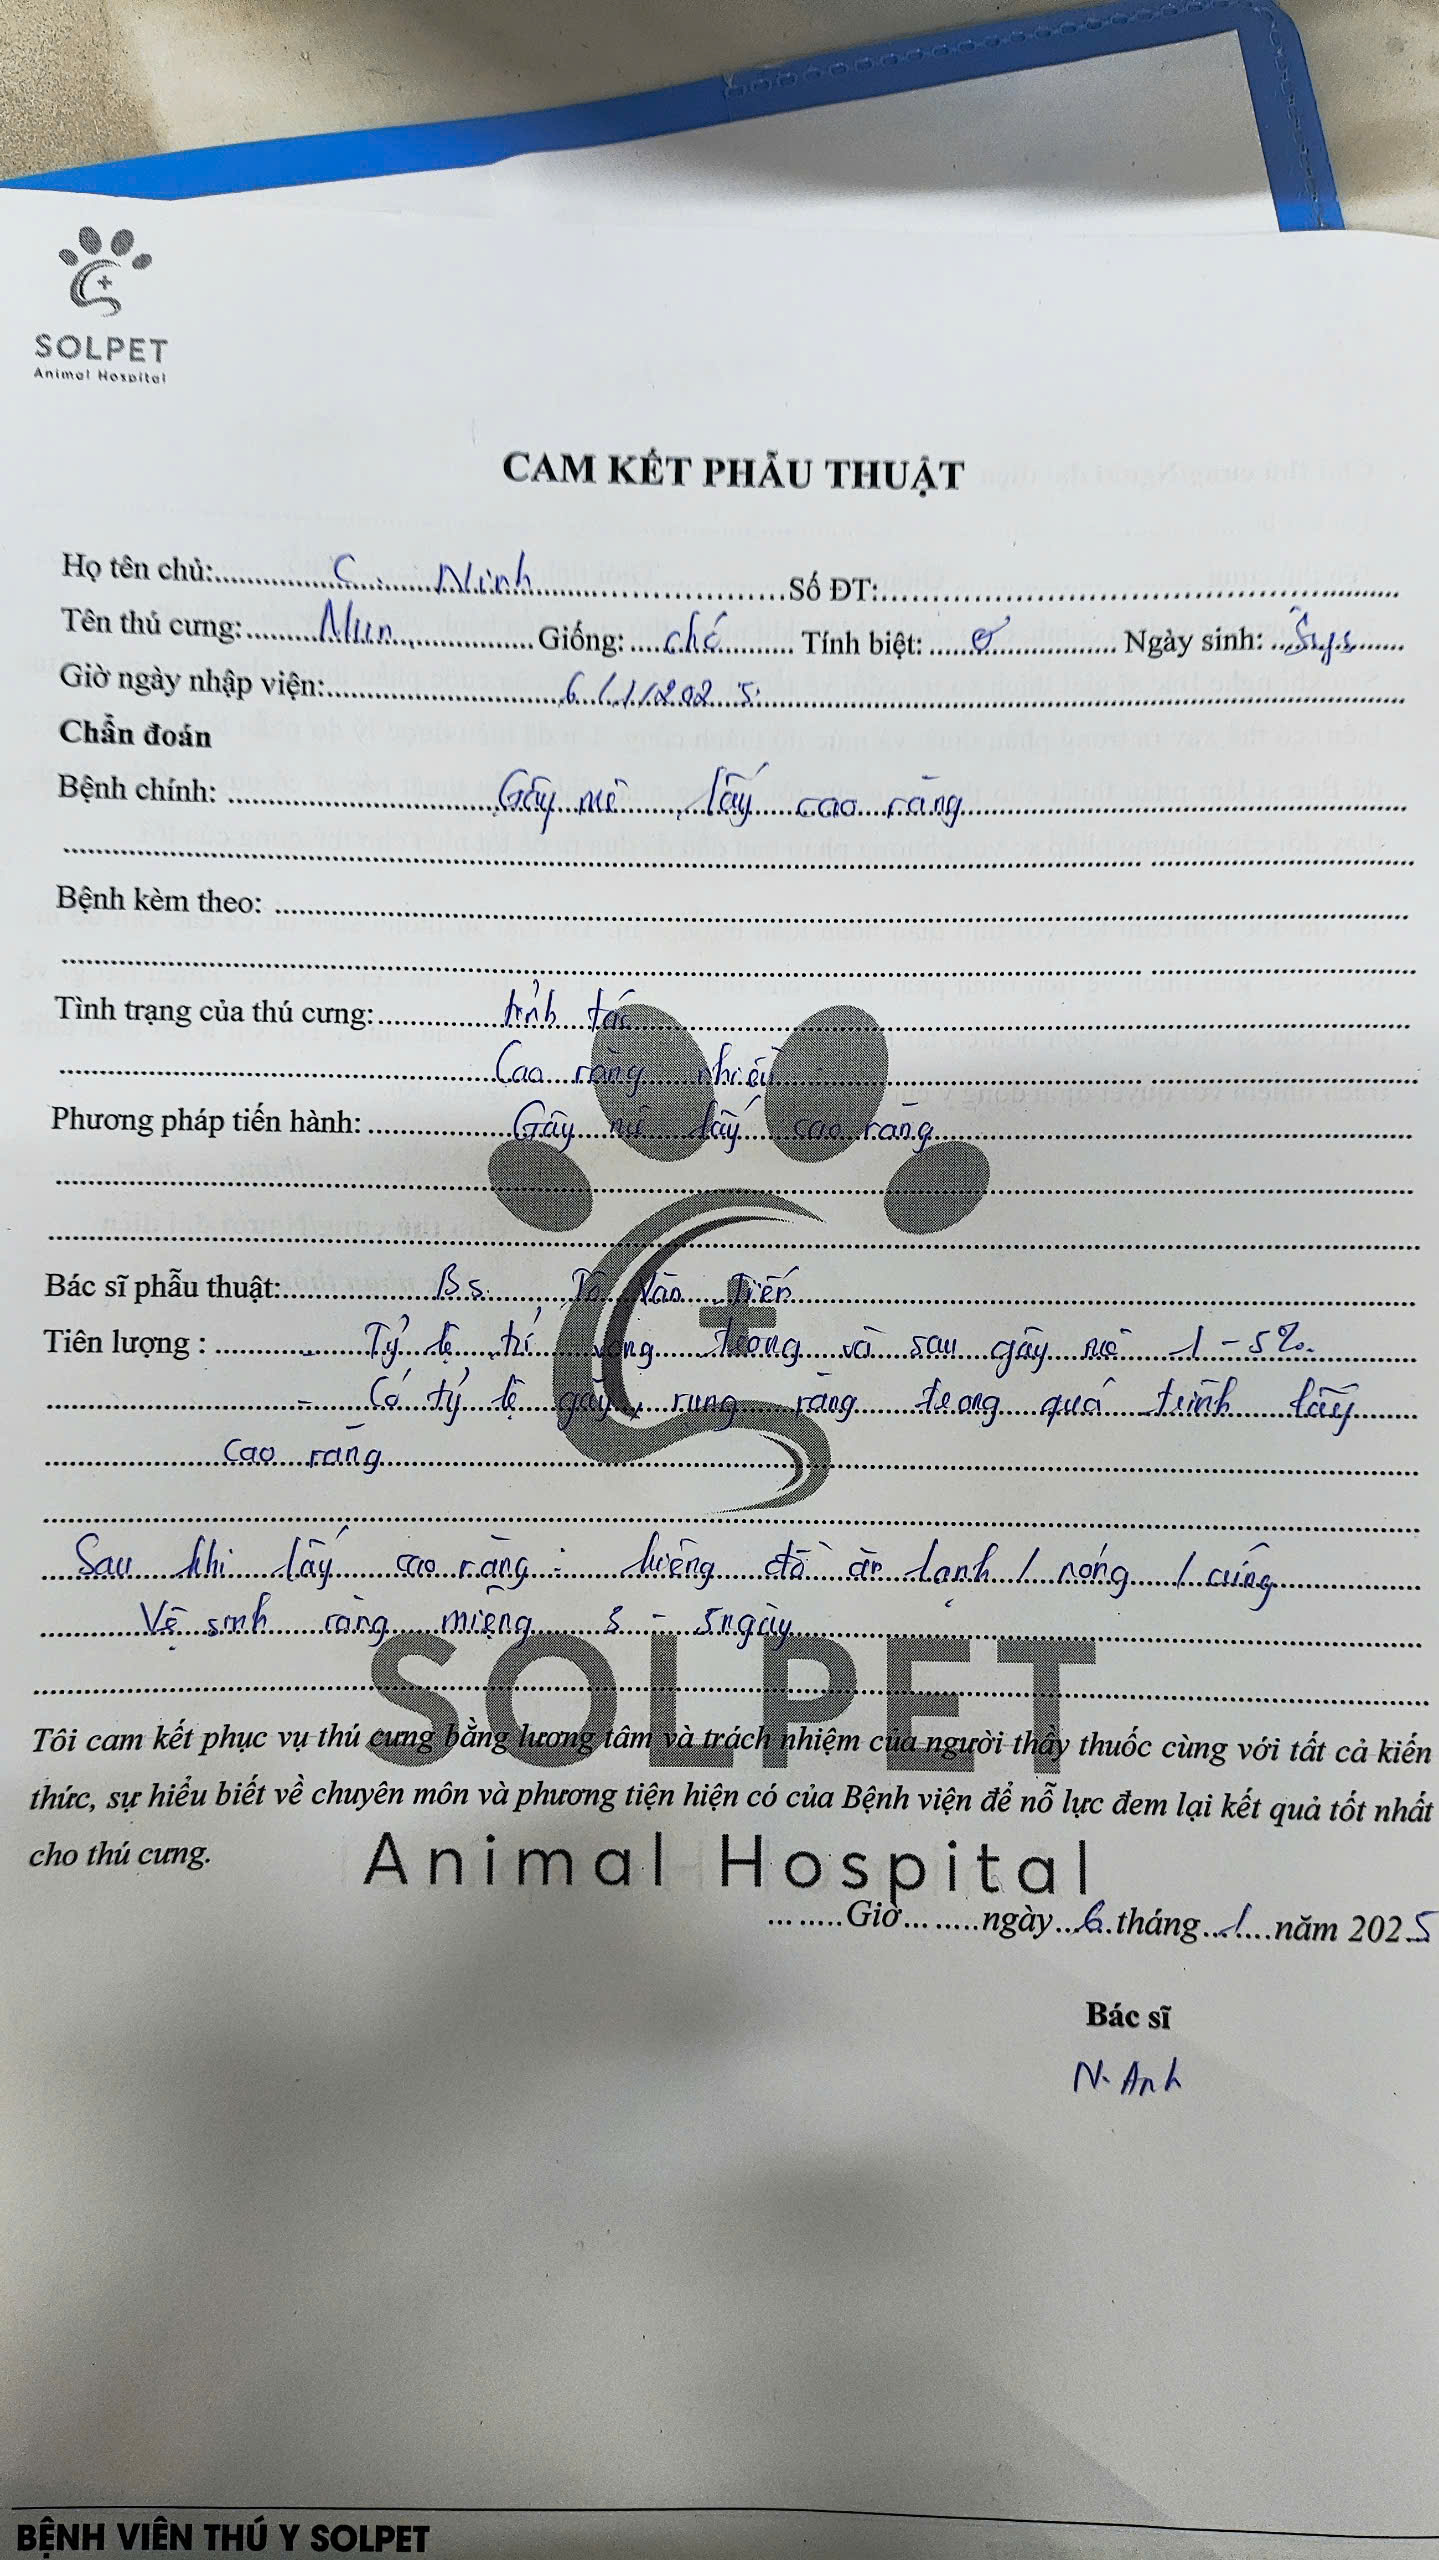 SOLPET
Animal Hospital
CAM KẾT PHẪU THUẬT
Họ tên chủ:..........C. Ninh..........Số ĐT:..........
Tên thú cưng:.....Mun.....Giống:....chó.....Tính biệt:.....♂.....Ngày sinh:..........
Giờ ngày nhập viện:..........6/1/2025..........
Chẩn đoán
Bệnh chính: ..........Gây mê lấy cao răng..........
Bệnh kèm theo: ..........
Tình trạng của thú cưng:..........tỉnh táo..........
Cao răng nhiều
Phương pháp tiến hành: ..........Gây mê lấy cao răng..........
Bác sĩ phẫu thuật:..........Bs. Tô Văn Tiến..........
Tiên lượng : ..........- Tỷ lệ tử vong trong và sau gây mê 1 - 5%.
- Có tỷ lệ gãy, rụng răng trong quá trình lấy
cao răng
Sau khi lấy cao răng : kiêng đồ ăn lạnh / nóng / cứng
Vệ sinh răng miệng 3 - 5 ngày
SOLPET
Tôi cam kết phục vụ thú cưng bằng lương tâm và trách nhiệm của người thầy thuốc cùng với tất cả kiến
thức, sự hiểu biết về chuyên môn và phương tiện hiện có của Bệnh viện để nỗ lực đem lại kết quả tốt nhất
cho thú cưng.
Animal Hospital
.........Giờ.........ngày...6..tháng...1....năm 2025
Bác sĩ
N. Anh
BỆNH VIÊN THÚ Y SOLPET